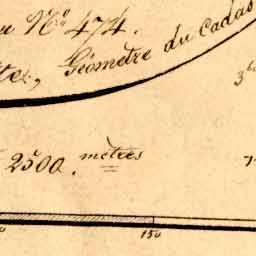 N.° 474.
Géomètre du Cadas
2500. mètres
150